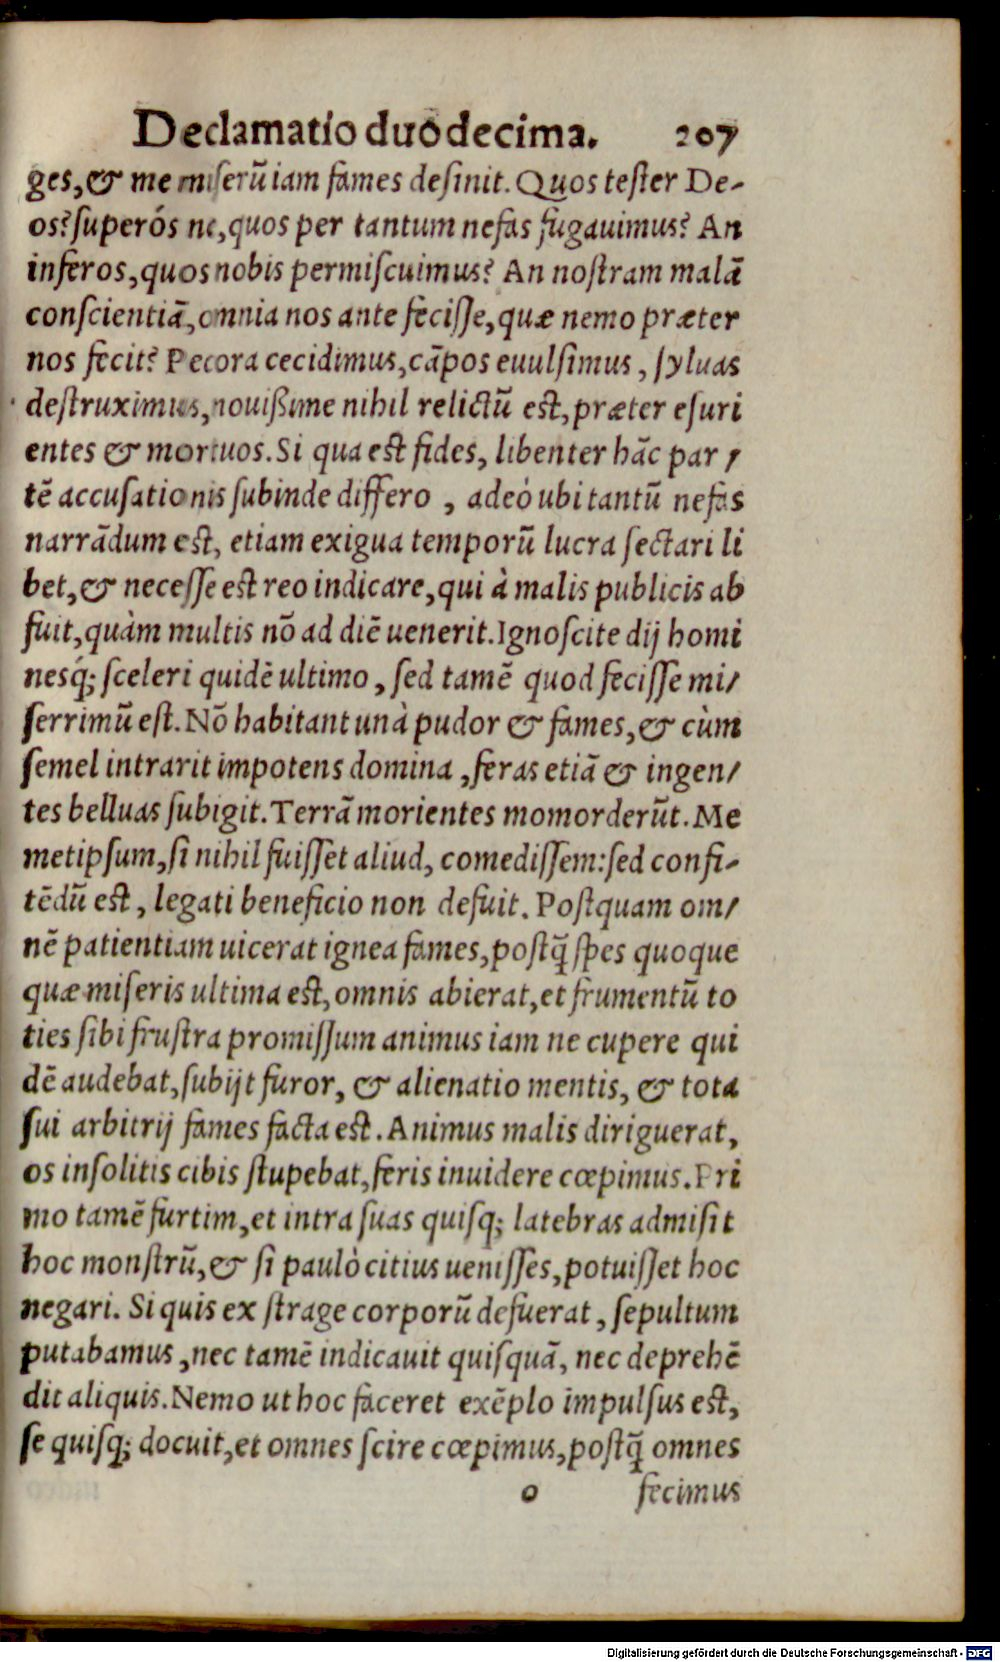 Declamatio duodecima. 207
ges,& me miserũ iam fames desinit. Quos tester De-
os? superós ne, quos per tantum nefas fugauimus? An
inferos, quos nobis permiscuimus? An nostram malã
conscientiã, omnia nos ante fecisse, quæ nemo præter
nos fecit? Pecora cecidimus, cãpos euulsimus, syluas
destruximus, nouißime nihil relictũ est, præter esuri
entes & mortuos. Si qua est fides, libenter hãc par-
tẽ accusationis subinde differo, adeò ubi tantũ nefas
narrãdum est, etiam exigua temporũ lucra sectari li
bet, & necesse est reo indicare, qui à malis publicis ab
fuit, quàm multis nõ ad diẽ uenerit. Ignoscite dij homi
nesq́; sceleri quidẽ ultimo, sed tamẽ quod fecisse mi-
serrimũ est. Nõ habitant unà pudor & fames, & cùm
semel intrarit impotens domina, feras etiã & ingen-
tes belluas subigit. Terrã morientes momorderũt. Me
metipsum, si nihil fuisset aliud, comedissem: sed confi-
tẽdũ est, legati beneficio non defuit. Postquam om-
nẽ patientiam uicerat ignea fames, postq̃ spes quoque
quæ miseris ultima est, omnis abierat, et frumentũ to
ties sibi frustra promissum animus iam ne cupere qui
dẽ audebat, subijt furor, & alienatio mentis, & tota
sui arbitrij fames facta est. Animus malis diriguerat,
os insolitis cibis stupebat, feris inuidere cœpimus. Pri
mo tamẽ furtim, et intra suas quisq; latebras admisit
hoc monstrũ, & si paulò citius uenisses, potuisset hoc
negari. Si quis ex strage corporũ defuerat, sepultum
putabamus, nec tamẽ indicauit quisquã, nec deprehẽ
dit aliquis. Nemo ut hoc faceret exẽplo impulsus est,
se quisq; docuit, et omnes scire cœpimus, postq̃ omnes
o fecimus
Digitalisierung gefördert durch die Deutsche Forschungsgemeinschaft - DFG